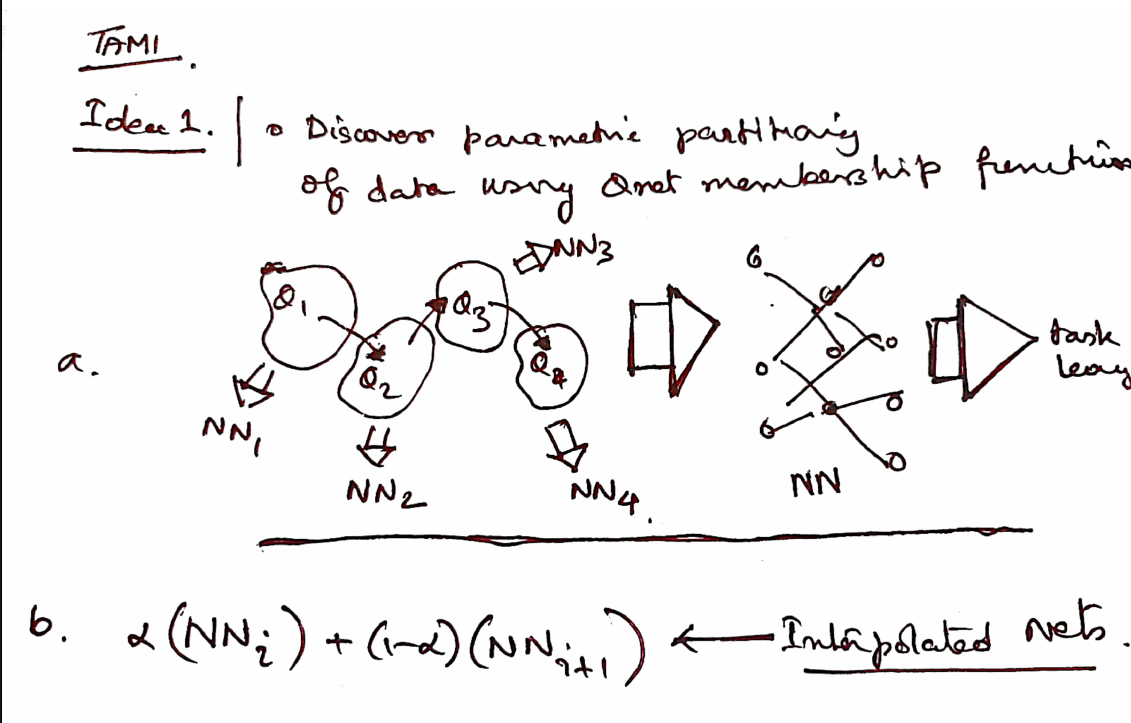 TAMI.
Idea 1. | • Discover parametric partitioning
of data using Qnet membership function
NN3
Q1
Q3
Q2
Q4
a.
task
NN1
NN2
NN4.
NN
b. α(NNi) + (1-α)(NNi+1) ← Interpolated Nets.